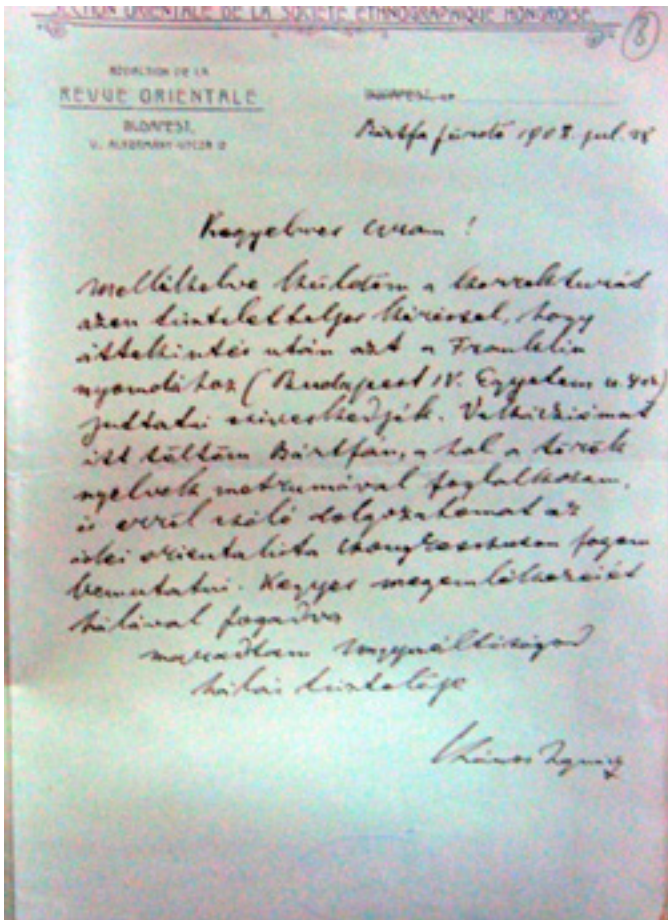 SECTION ORIENTALE DE LA SOCIÉTÉ ETHNOGRAPHIQUE HONGROISE.
8
RÉDACTION DE LA
REVUE ORIENTALE
BUDAPEST,
BUDAPEST, LE
Bártfa fürdő 1908. jul. 28
Kegyelmes uram!
Mellékelve küldöm a korrekturát
azon tiszteletteljes kéréssel, hogy
áttekintés után azt a Franklin
nyomdához (Budapest IV. Egyetem u.
juttatni sziveskedjék. Vakációmat
itt töltöm Bártfán, a hol a török
nyelvek metrumával foglalkozom,
és erről szóló dolgozatomat az
idei orientalista congressuson fogom
bemutatni. Kegyes megemlékezését
hálával fogadva
maradtam Nagyméltóságod
hálás tisztelője
Kúnos Ignácz